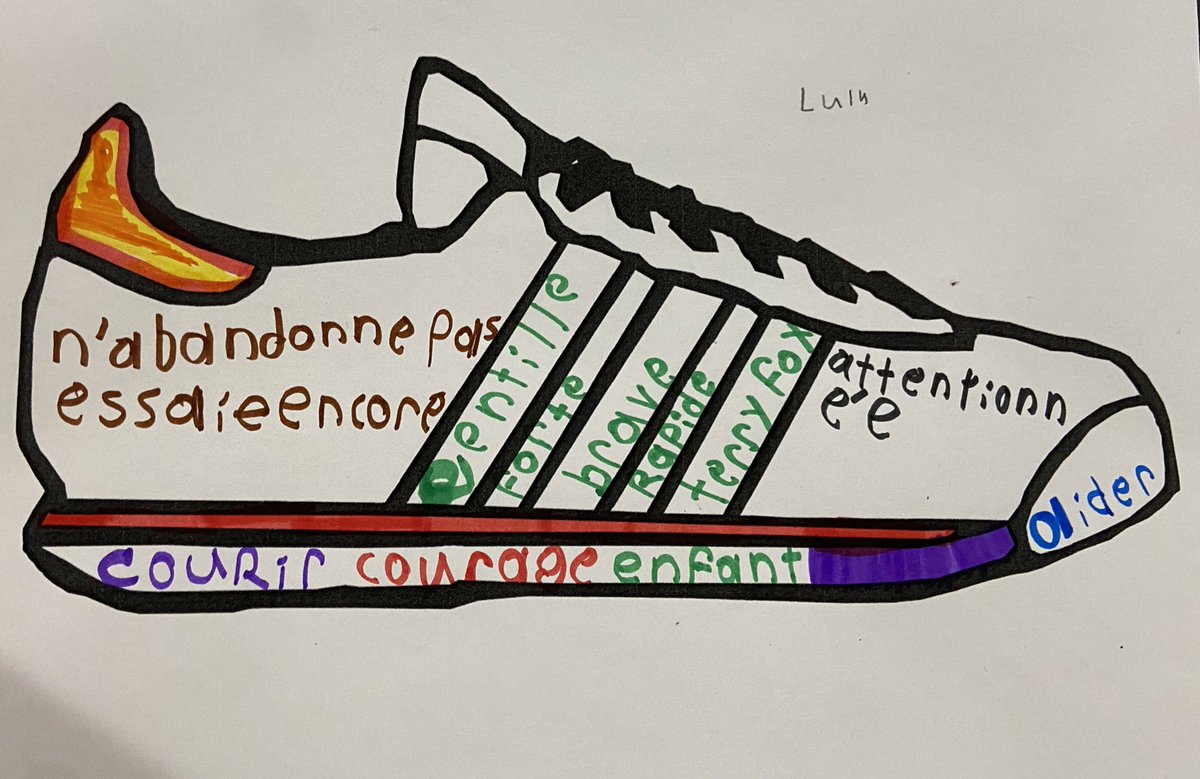 Lulu
n'abandonne pas
essaie encore
gentille
forte
brave
Rapide
terry fox
attentionn
ée
aider
couRir courage enfant